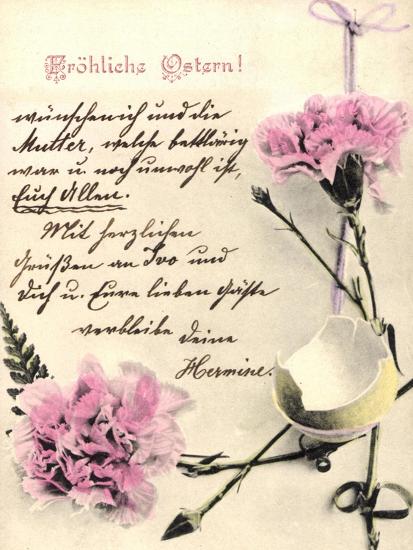 Fröhliche Ostern!
wünschen ich und die
Mutter, welche bettlärig
war u. noch unwohl ist,
Euch Allen.
Mit herzlichen
Grüßen an Ivo und
Dich u. Eure lieben Gäste
verbleibe Deine
Hermine.